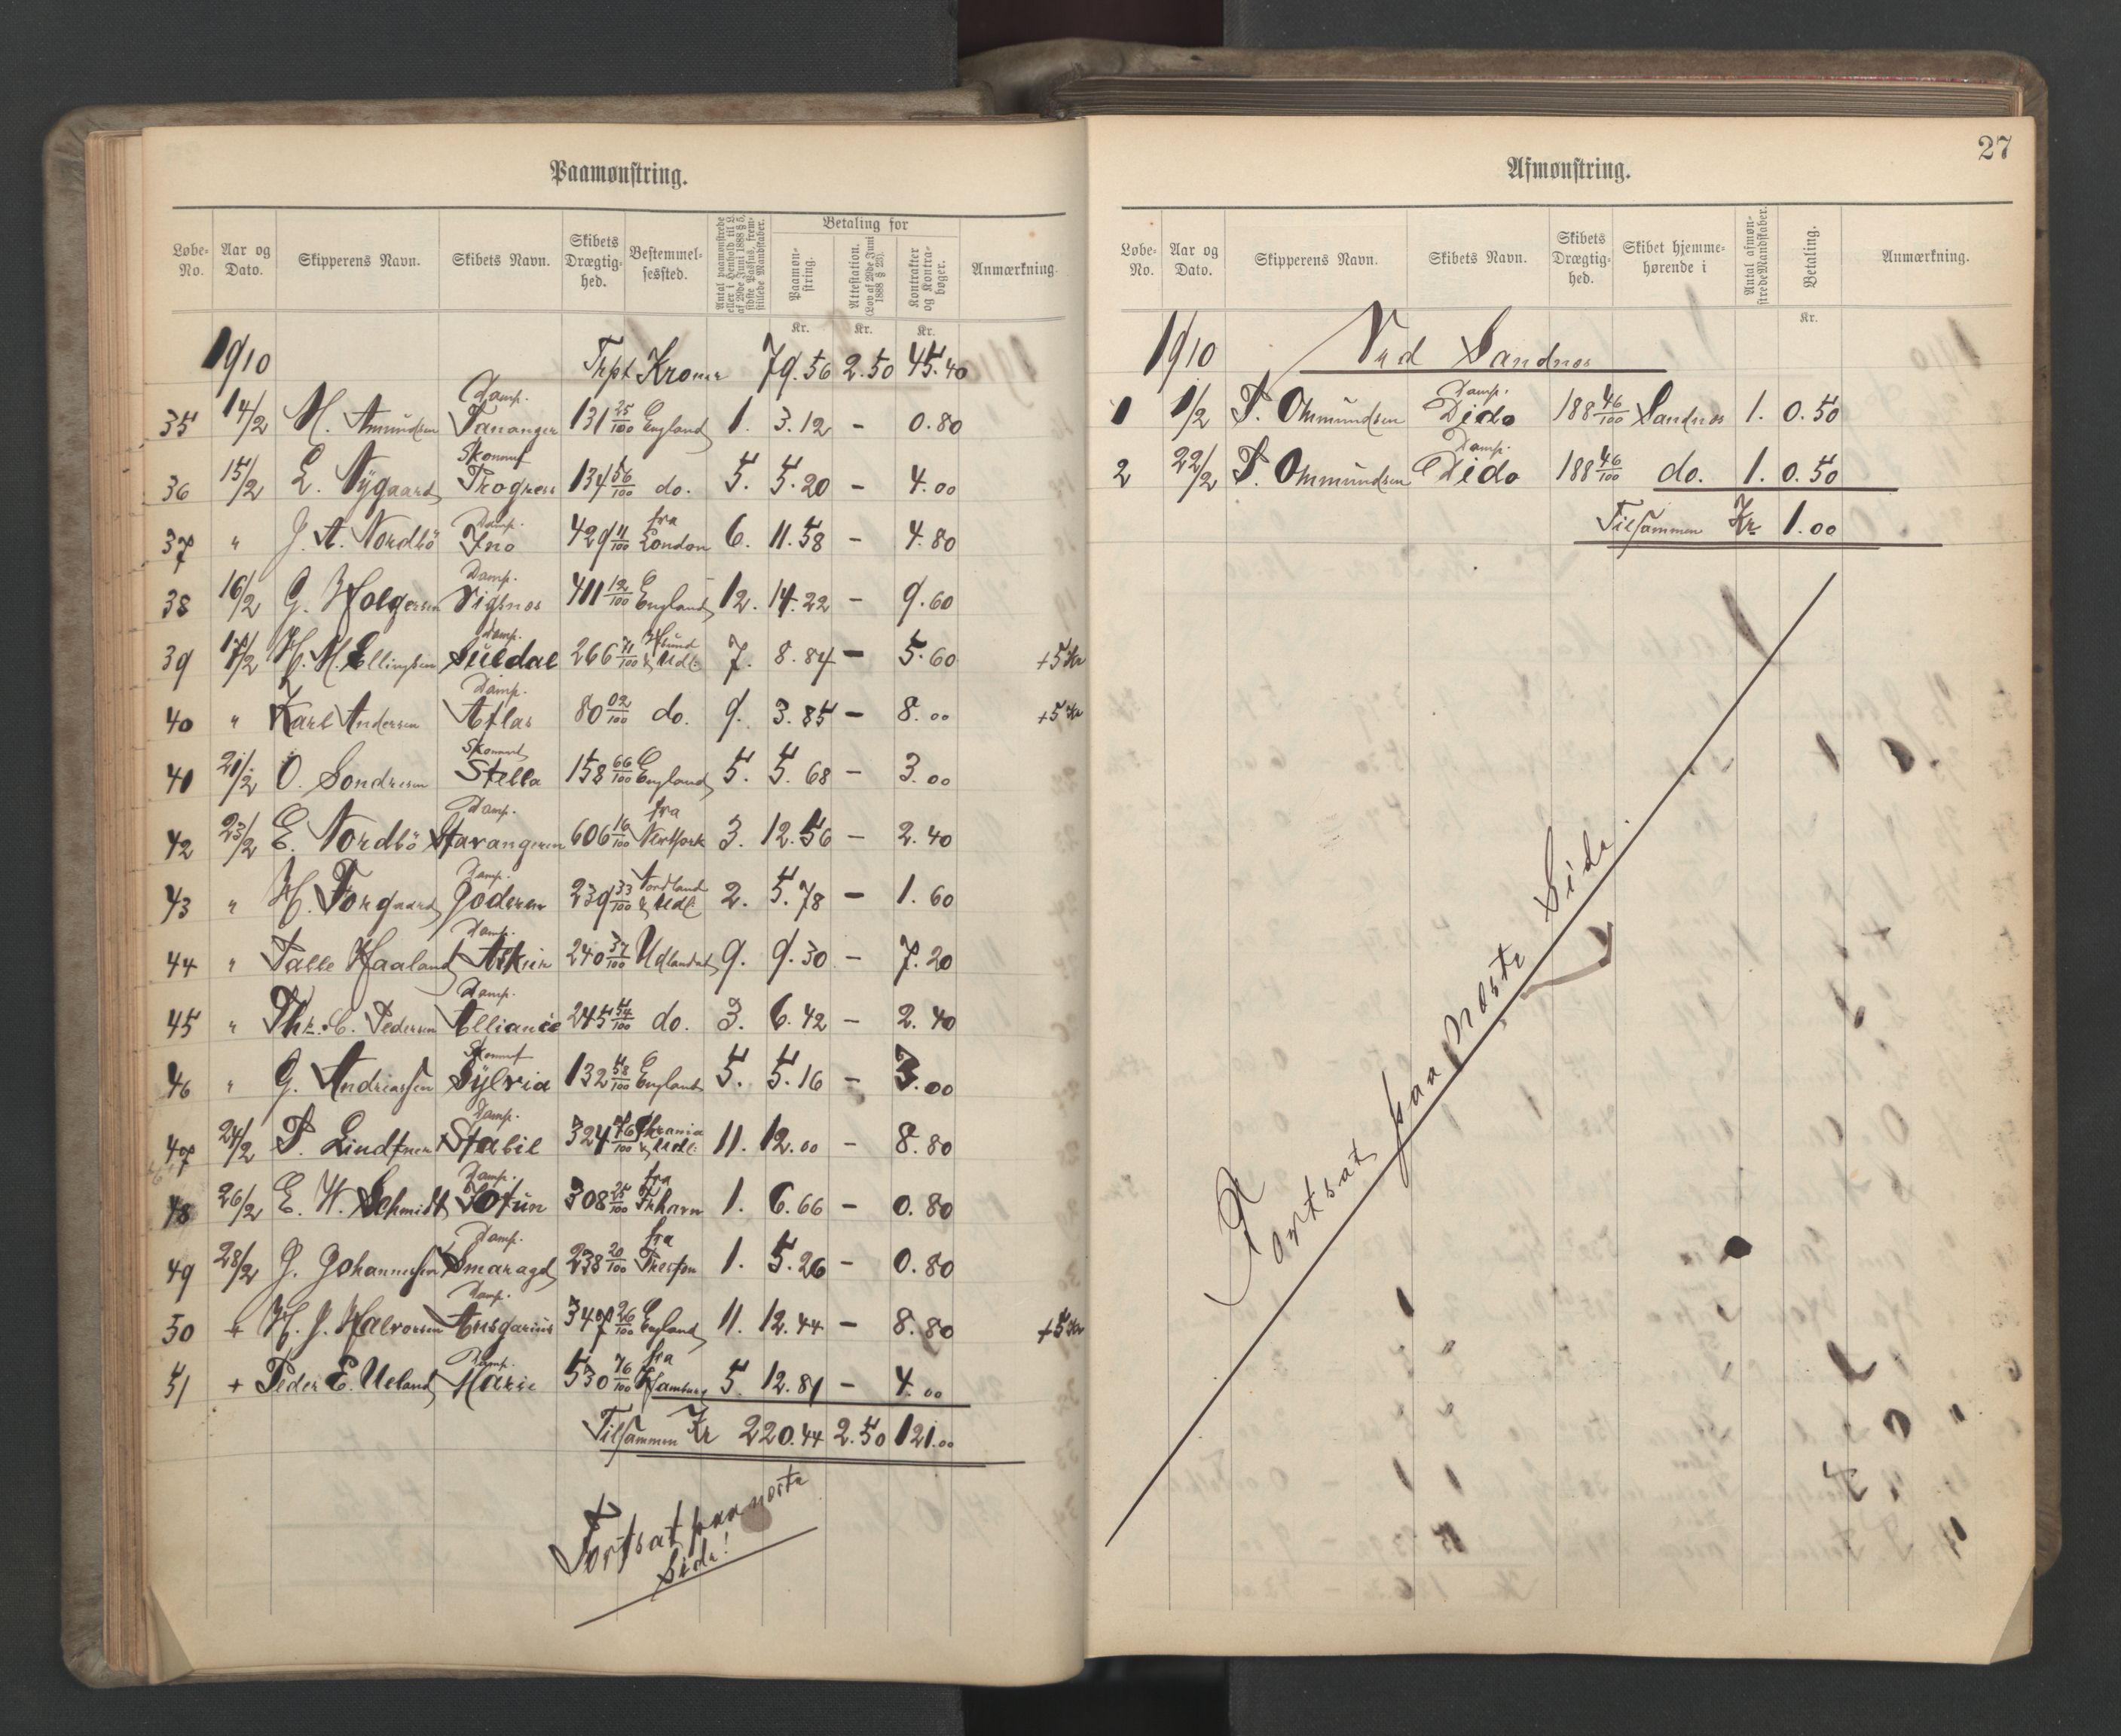 Paamønstring.
Løbe-No. Aar og Dato. Skipperens Navn. Skibets Navn. Skibets Drægtig-hed. Bestemmel-sessted. Antal paamønstrede eller i Henhold til L. af 29de Juni 1888 § 5, sidste Passus, frem-stillede Mandskaber. Betaling for Paamøn-string. Attestation. (Lov af 29de Juni 1888 § 23). Kontrakter og Kontra-bøger. Anmærkning.
Kr. Kr. Kr.
1910 Trspt Kroner 79.56 2.50 45.40
35 14/2 M. Amundsen Damp. Tananger 131 25/100 England 1. 3.12 - 0.80
36 15/2 L. Nygaard Skonnert Progress 134 56/100 do. 5. 5.20 - 4.00
37 " J. A. Nordbö Damp. Ino 429 11/100 fra London 6. 11.58 - 4.80
38 16/2 G. Holgersen Damp. Vigsnes 411 12/100 England 12. 14.22 - 9.60
39 17/2 H. M. Ellingsen Damp. Suldal 266 71/100 Hsund & Udl: 7. 8.84 - 5.60 +5 Kr
40 " Karl Andersen Damp. Atlas 80 02/100 do. 9. 3.85 - 8.00 +5 Kr
40 21/2 O. Sondresen Skonnert Stella 158 66/100 England 5. 5.68 - 3.00
42 23/2 E. Nordbö Damp. Stavangeren 606 16/100 fra NewYork 3. 12.56 - 2.40
43 " H. Torgaard Damp. Jæderen 239 33/100 Nordland & Udl: 2. 5.78 - 1.60
44 " Palle Haaland Damp. Askur 240 37/100 Udlandet 9. 9.30 - 7.20
45 " Thr. C. Pedersen Damp. Alliance 245 54/100 do. 3. 6.42 - 2.40
46 " G. Andreassen Skonnert Sylvia 132 58/100 England 5. 5.16 - 3.00
47 24/2 P. Lindtner Damp. Stabil 324 76/100 Khrania & Udl: 11. 12.00 - 8.80
48 26/2 E. W. Schmidt Damp. Jotun 308 25/100 fra Fkhavn 1. 6.66 - 0.80
49 28/2 J. Johannesen Damp. Smaragd 238 20/100 fra 1. 5.26 - 0.80
50 + H. J. Halvorsen Damp. Ansgarius 347 26/100 England 11. 12.44 - 8.80 +5 Kr
51 + Peder E. Ueland Damp. Marie 530 76/100 fra Hamburg 5. 12.81 - 4.00
Tilsammen Kr 220.44 2.50 121.00
Fortsat paa næste
Side!
27
Afmønstring.
Løbe-No. Aar og Dato. Skipperens Navn. Skibets Navn. Skibets Drægtig-hed. Skibet hjemme-hørende i Antal afmøn-strede Mandskaber. Betaling. Anmærkning.
Kr.
1910 Ved Sandnes
1 1/2 P. Ommundsen Damp. Dido 188 46/100 Sandnes 1. 0.50
2 22/2 P. Ommundsen Damp. Dido 188 46/100 do. 1. 0.50
Tilsammen Kr 1.00
Fortsat paa næste Side.